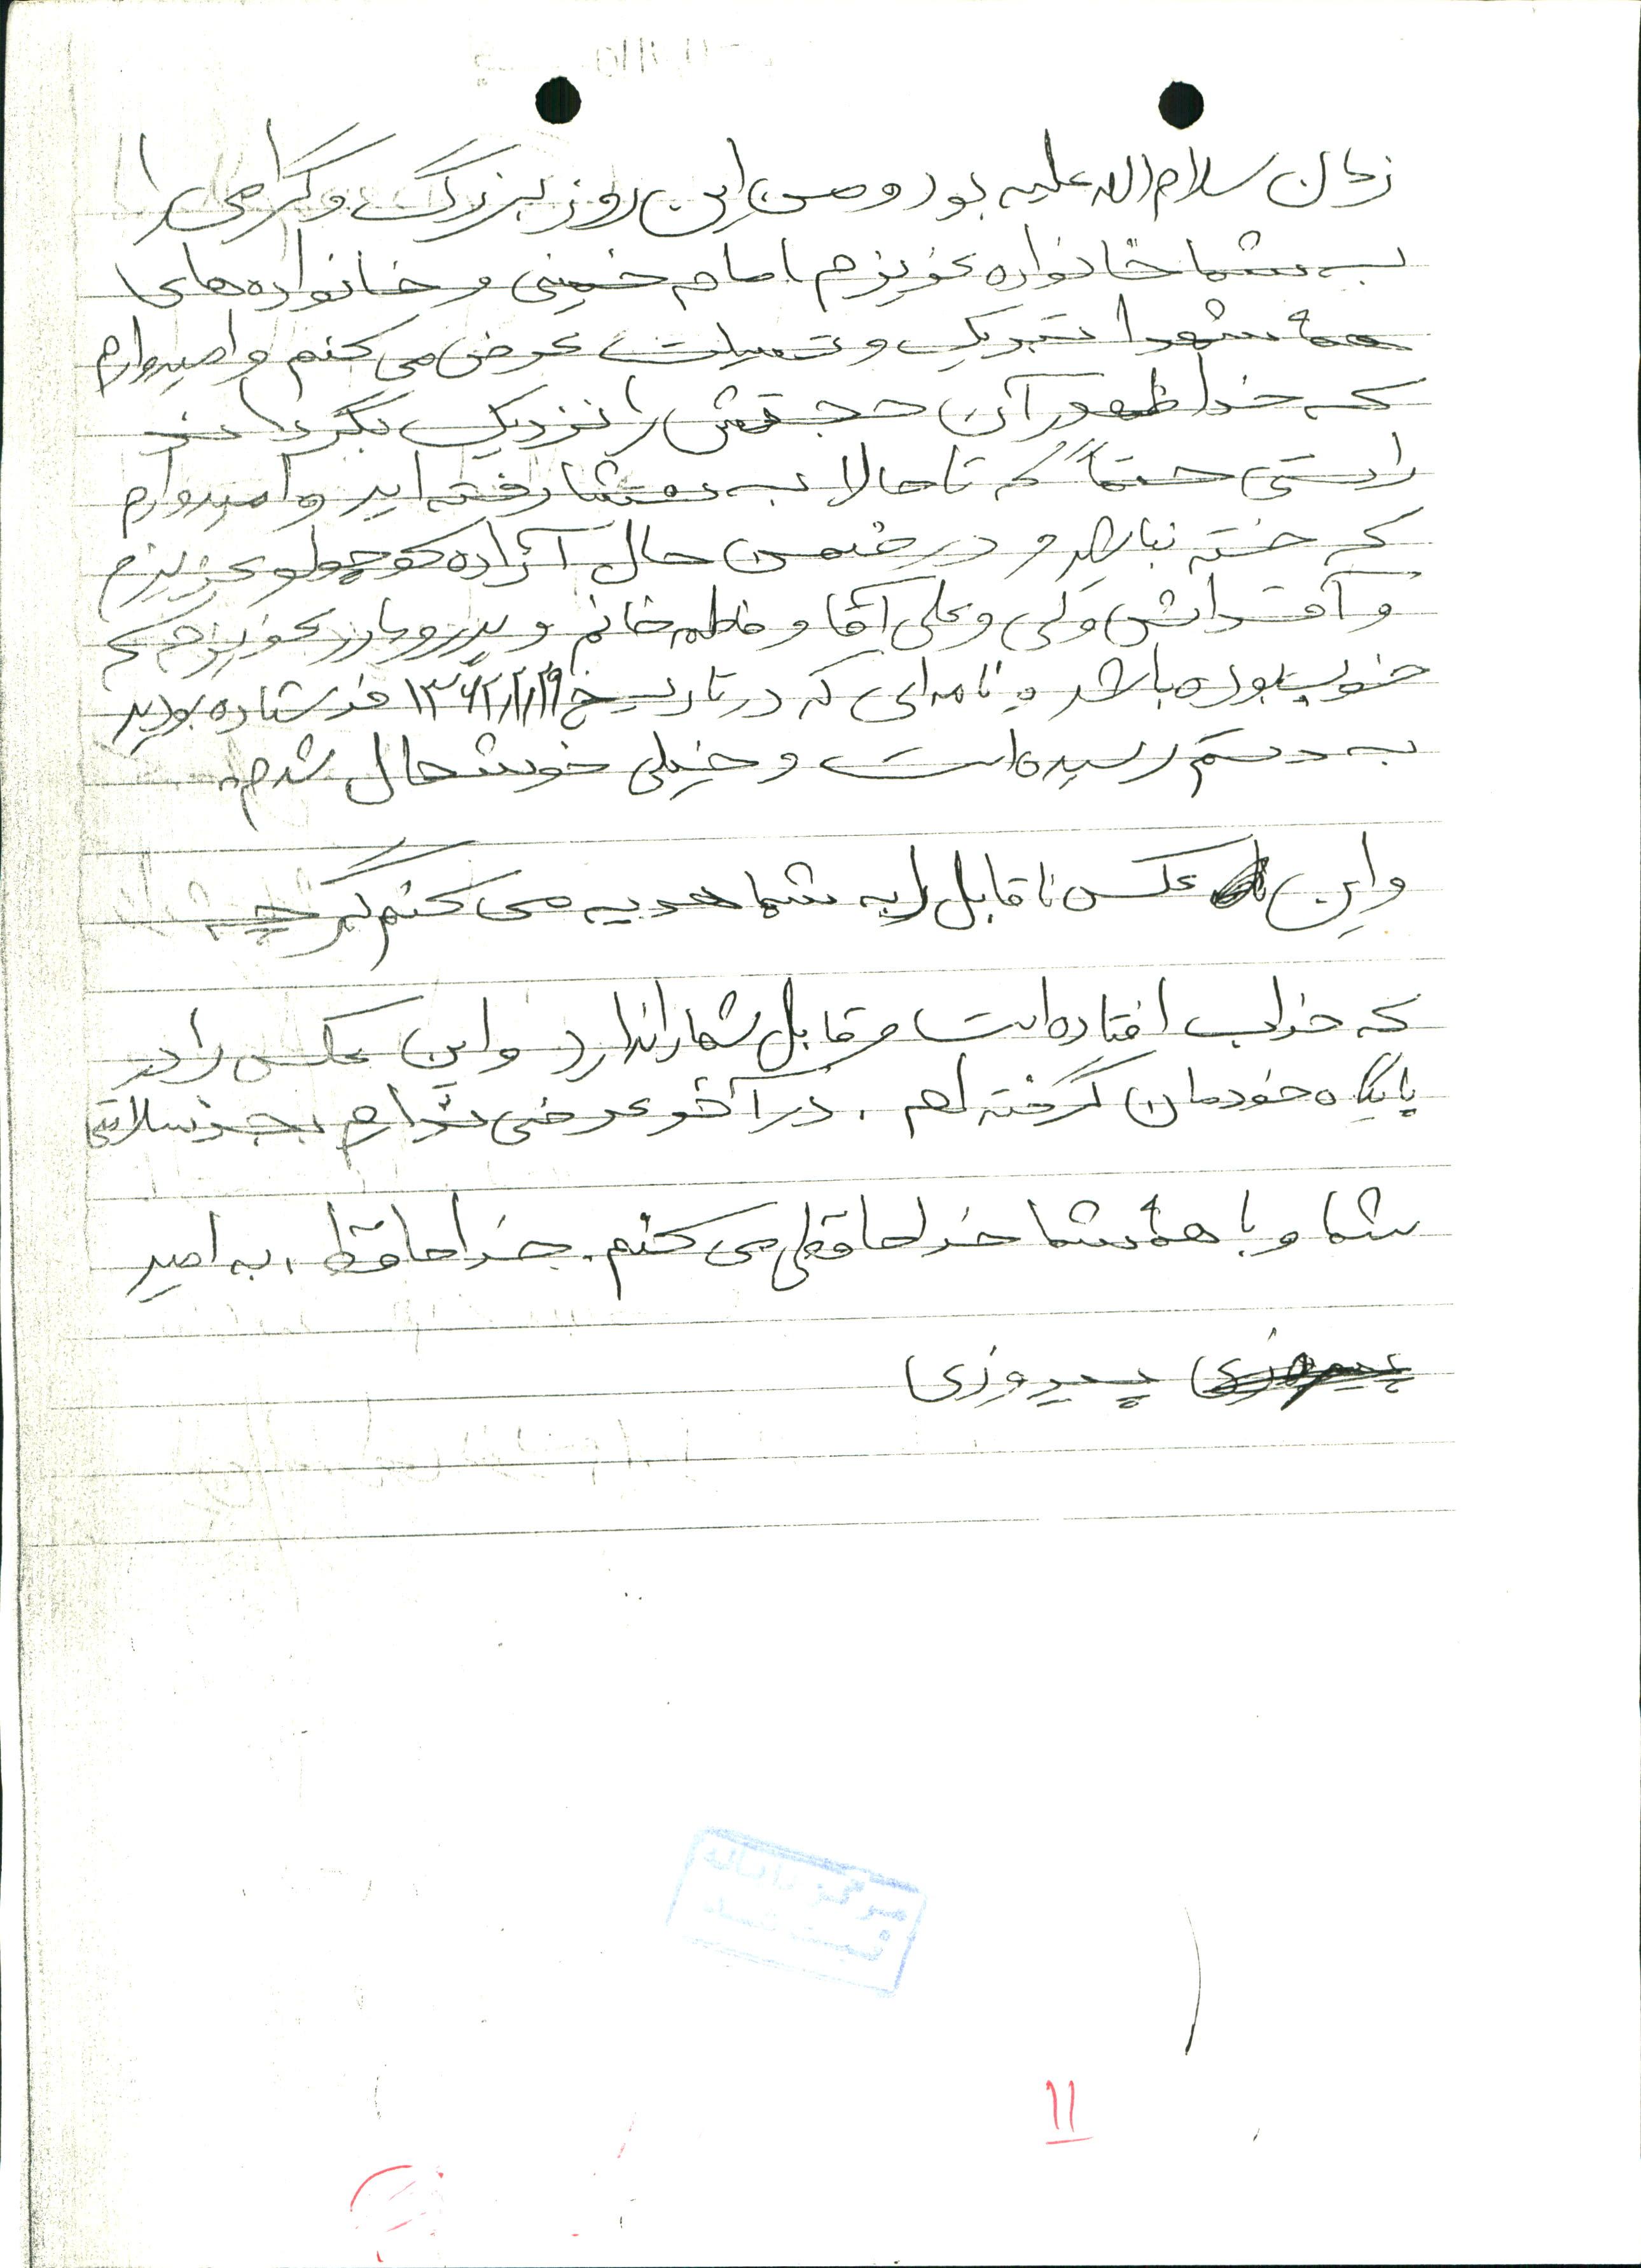 زمان سلام الله علیه بود و من این روز بزرگ و گرامی را
به شما خانواده عزیزم امام خمینی و خانواده های
همهٔ شهدا تبریک و تسلیت عرض می کنم و امیدوارم
که خدا ظهور آن حجتش را نزدیک بگرداند
راستی حتماً که تا حالا به رفته اید و امیدوارم
که خسته نباشید و در ضمن حال آزاده کوچولو عزیزم
و علی آقا و فاطمه خانم و پدر و مادر عزیزم که
خوب بوده باشد و نامه ای که در تاریخ فرستاده بودید
به دستم رسیده است و خیلی خوشحال شدم.
و این عکس ناقابل را به شما هدیه می کنم گرچه
که خراب افتاده است و قابل شما را ندارد و این عکس را در
پایگاه خودمان گرفته ام . در آخر عرضی ندارم ، بجز سلامتی
شما و با همهٔ شما خداحافظی می کنم . خداحافظ ، به امید
پیروزی پیروزی
مرکز
ثبت شد
11